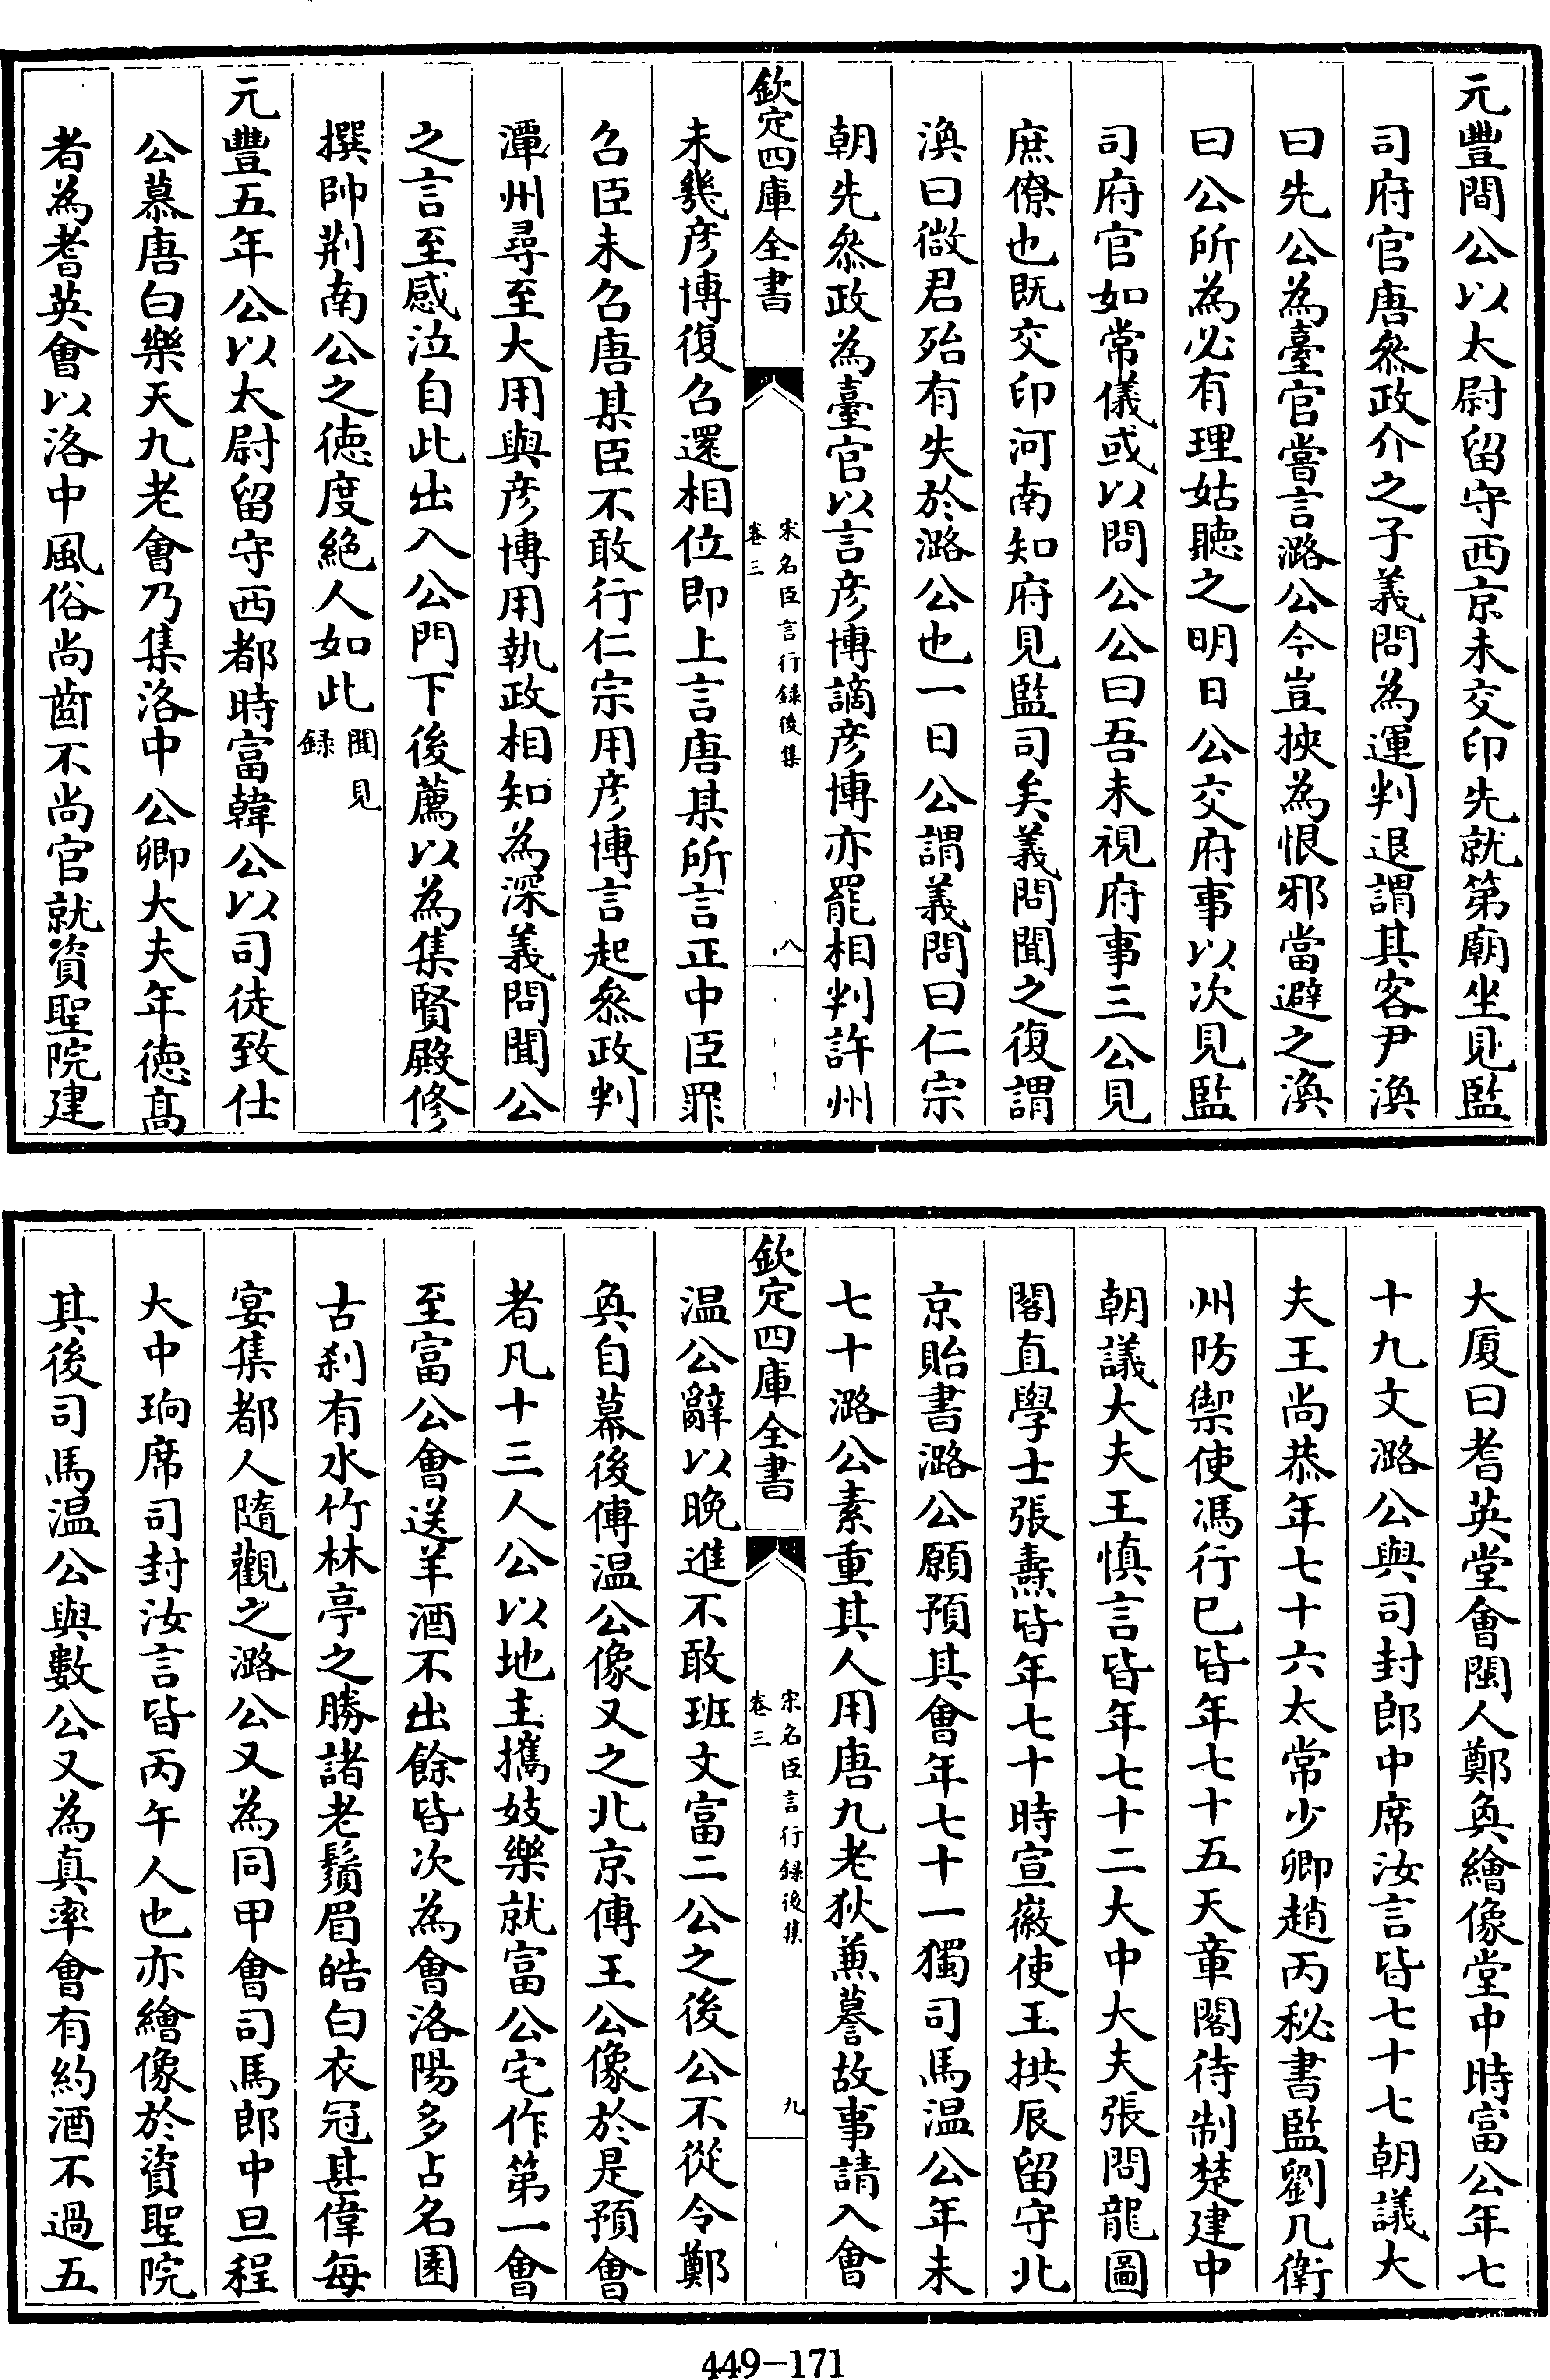 元豐間公以太尉留守西京未交印先就第廟坐見監
司府官唐叅政介之子義問為運判退謂其客尹渙
曰先公為臺官嘗言潞公今豈挾為恨邪當避之渙
曰公所為必有理姑聽之明日公交府事以次見監
司府官如常儀或以問公公曰吾未視府事三公見
庶僚也既交印河南知府見監司矣義問聞之復謂
渙曰微君殆有失於潞公也一日公謂義問曰仁宗
朝先叅政為臺官以言彦博謫彦博亦罷相判許州
欽定四庫全書
宋名臣言行録後集
卷三
八
未幾彦博復召還相位即上言唐某所言正中臣罪
召臣未召唐某臣不敢行仁宗用彦博言起叅政判
潭州尋至大用與彦博用執政相知為深義問聞公
之言至感泣自此出入公門下後薦以為集賢殿修
撰帥荆南公之德度絶人如此聞見
録
元豐五年公以太尉留守西都時富韓公以司徒致仕
公慕唐白樂天九老會乃集洛中公卿大夫年德髙
者為耆英會以洛中風俗尚齒不尚官就資聖院建
大厦曰耆英堂會閩人鄭奐繪像堂中時富公年七
十九文潞公與司封郎中席汝言皆七十七朝議大
夫王尚恭年七十六太常少卿趙丙秘書監劉几衛
州防禦使馮行已皆年七十五天章閣待制楚建中
朝議大夫王慎言皆年七十二大中大夫張問龍圖
閣直學士張燾皆年七十時宣徽使王拱辰留守北
京貽書潞公願預其會年七十一獨司馬温公年未
七十潞公素重其人用唐九老狄兼謩故事請入會
欽定四庫全書
宋名臣言行録後集
卷三
九
温公辭以晚進不敢班文富二公之後公不從令鄭
奐自幕後傳温公像又之北京傳王公像於是預會
者凡十三人公以地主攜妓樂就富公宅作第一會
至富公會送羊酒不出餘皆次為會洛陽多占名園
古刹有水竹林亭之勝諸老鬚眉皓白衣冠甚偉每
宴集都人隨觀之潞公又為同甲會司馬郎中旦程
大中珦席司封汝言皆丙午人也亦繪像於資聖院
其後司馬温公與數公又為真率會有約酒不過五
449-171